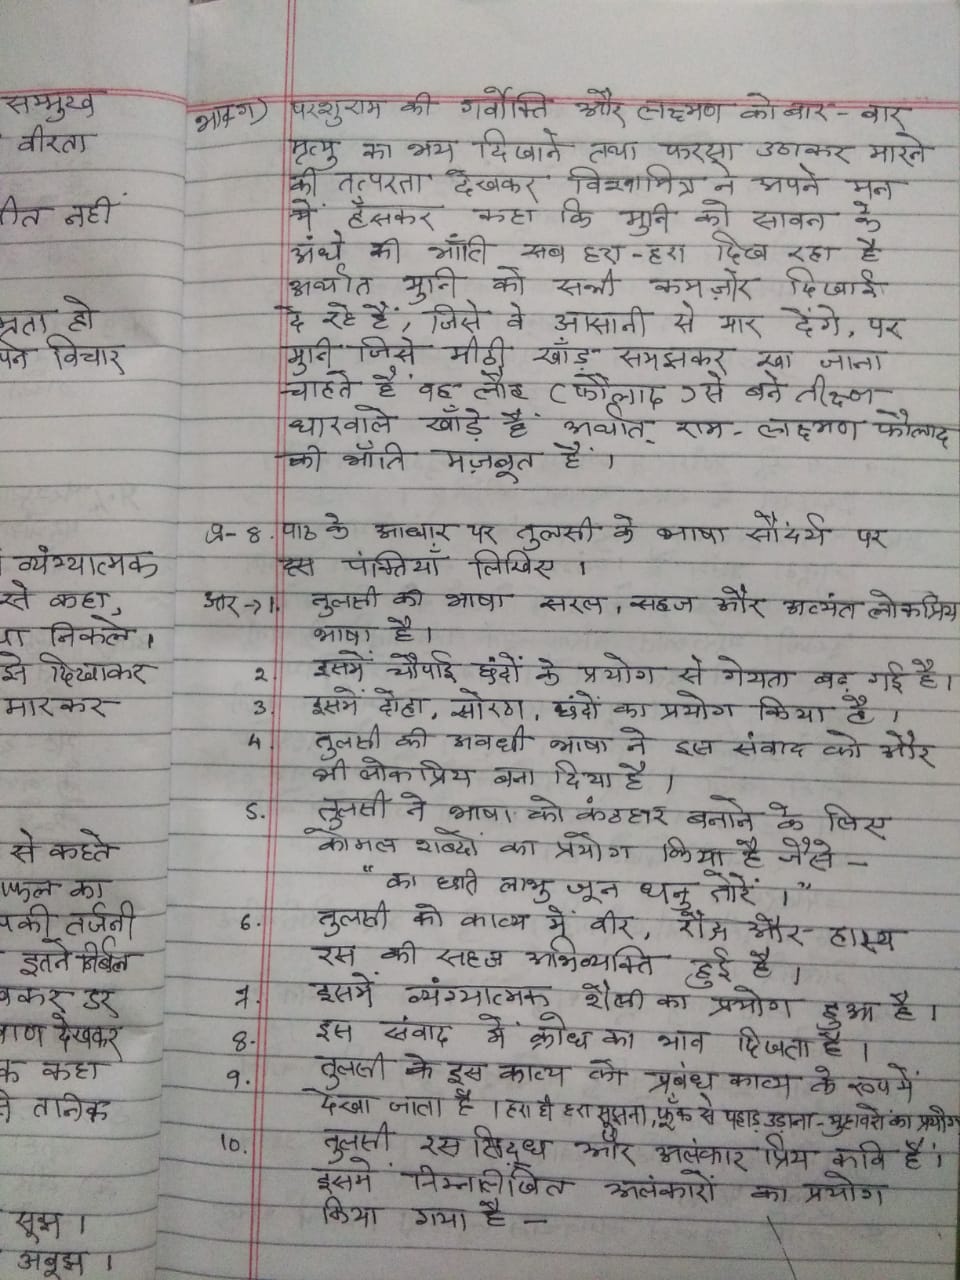 सम्मुख
वीरता
नहीं
विचार
व्यंग्यात्मक
से कहा,
निकले।
दिखाकर
मारकर
से कहते
का
तर्जनी
इतने निर्बल
डर
देखकर
कहा
तनिक
सूझ।
अबूझ।
परशुराम की गर्वोक्ति और लक्ष्मण को बार-बार
मृत्यु का भय दिखाने तथा फरसा उठाकर मारने
की तत्परता देखकर विश्वामित्र ने अपने मन
में हँसकर कहा कि मुनि को सावन के
अंधे की भाँति सब हरा-हरा दिख रहा है
अर्थात मुनि को सभी कमज़ोर दिखाई
दे रहे हैं, जिसे वे आसानी से मार देंगे, पर
मुनि जिसे मीठी खाँड़ समझकर खा जाना
चाहते हैं वह लौह (फौलाद) से बने तीक्ष्ण
धारवाले खाँड़े हैं अर्थात् राम-लक्ष्मण फौलाद
की भाँति मज़बूत हैं।
प्र-8. पाठ के आधार पर तुलसी के भाषा सौंदर्य पर
दस पंक्तियाँ लिखिए।
उत्तर→1. तुलसी की भाषा सरल, सहज और अत्यंत लोकप्रिय
भाषा है।
2. इसमें चौपाई छंदों के प्रयोग से गेयता बढ़ गई है।
3. इसमें दोहा, सोरठा, छंदों का प्रयोग किया है।
4. तुलसी की अवधी भाषा ने इस संवाद को और
भी लोकप्रिय बना दिया है।
5. तुलसी ने भाषा को कंठहार बनाने के लिए
कोमल शब्दों का प्रयोग किया है जैसे -
"का छति लाभु जून धनु तोरें।"
6. तुलसी के काव्य में वीर, रौद्र और हास्य
रस की सहज अभिव्यक्ति हुई है।
7. इसमें व्यंग्यात्मक शैली का प्रयोग हुआ है।
8. इस संवाद में क्रोध का भाव दिखता है।
9. तुलसी के इस काव्य को प्रबंध काव्य के रूप में
देखा जाता है। हरा ही हरा सूझना, फूँक से पहाड़ उड़ाना-मुहावरों का प्रयोग
10. तुलसी रस सिद्ध और अलंकार प्रिय कवि हैं।
इसमें निम्नलिखित अलंकारों का प्रयोग
किया गया है -